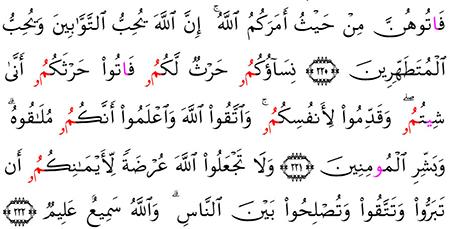 فَاتُوهُنَّ مِنْ حَيْثُ أَمَرَكُمُ ٱللَّهُ ۚ إِنَّ ٱللَّهَ يُحِبُّ ٱلتَّوَّٰبِينَ وَيُحِبُّ
ٱلْمُتَطَهِّرِينَ ٢٢٠ نِسَآؤُكُمُۥ حَرْثٌ لَّكُمُۥ فَاتُوا۟ حَرْثَكُمُۥ أَنَّىٰ
شِيتُمُۥ ۖ وَقَدِّمُوا۟ لِأَنفُسِكُمُۥ ۚ وَٱتَّقُوا۟ ٱللَّهَ وَٱعْلَمُوٓا۟ أَنَّكُمُۥ مُلَٰقُوهُ ۗ
وَبَشِّرِ ٱلْمُومِنِينَ ٢٢١ وَلَا تَجْعَلُوا۟ ٱللَّهَ عُرْضَةً لِّأَيْمَٰنِكُمُۥ أَن
تَبَرُّوا۟ وَتَتَّقُوا۟ وَتُصْلِحُوا۟ بَيْنَ ٱلنَّاسِ ۗ وَٱللَّهُ سَمِيعٌ عَلِيمٌ ٢٢٢